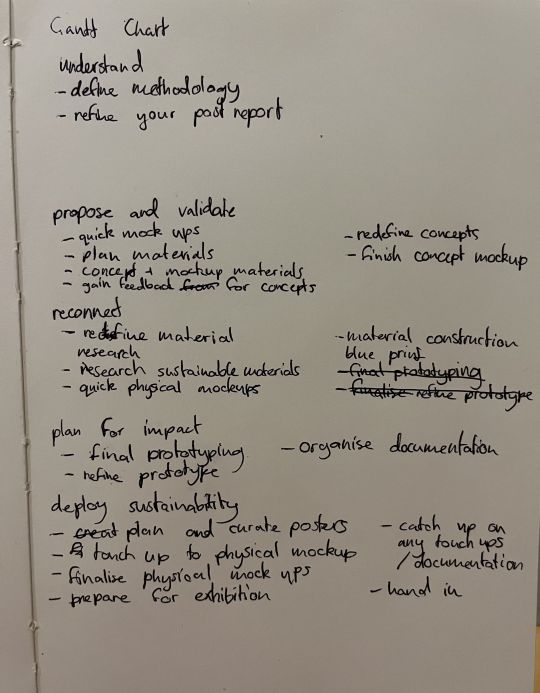 Gantt Chart
understand
- define methodology
- refine your past report
propose and validate
- quick mock ups
- plan materials
- concept + mockup materials
- gain feedback from for concepts
- redefine concepts
- finish concept mockup
reconnect
- redefine material
research
- research sustainable materials
- quick physical mockups
- material construction
blue print
- final prototyping
- finalise refine prototype
plan for impact
- final prototyping
- refine prototype
- organise documentation
deploy sustainability
- creat plan and curate posters
- touch up to physical mockup
- finalise physical mock ups
- prepare for exhibition
- catch up on
any touch ups
/documentation
- hand in